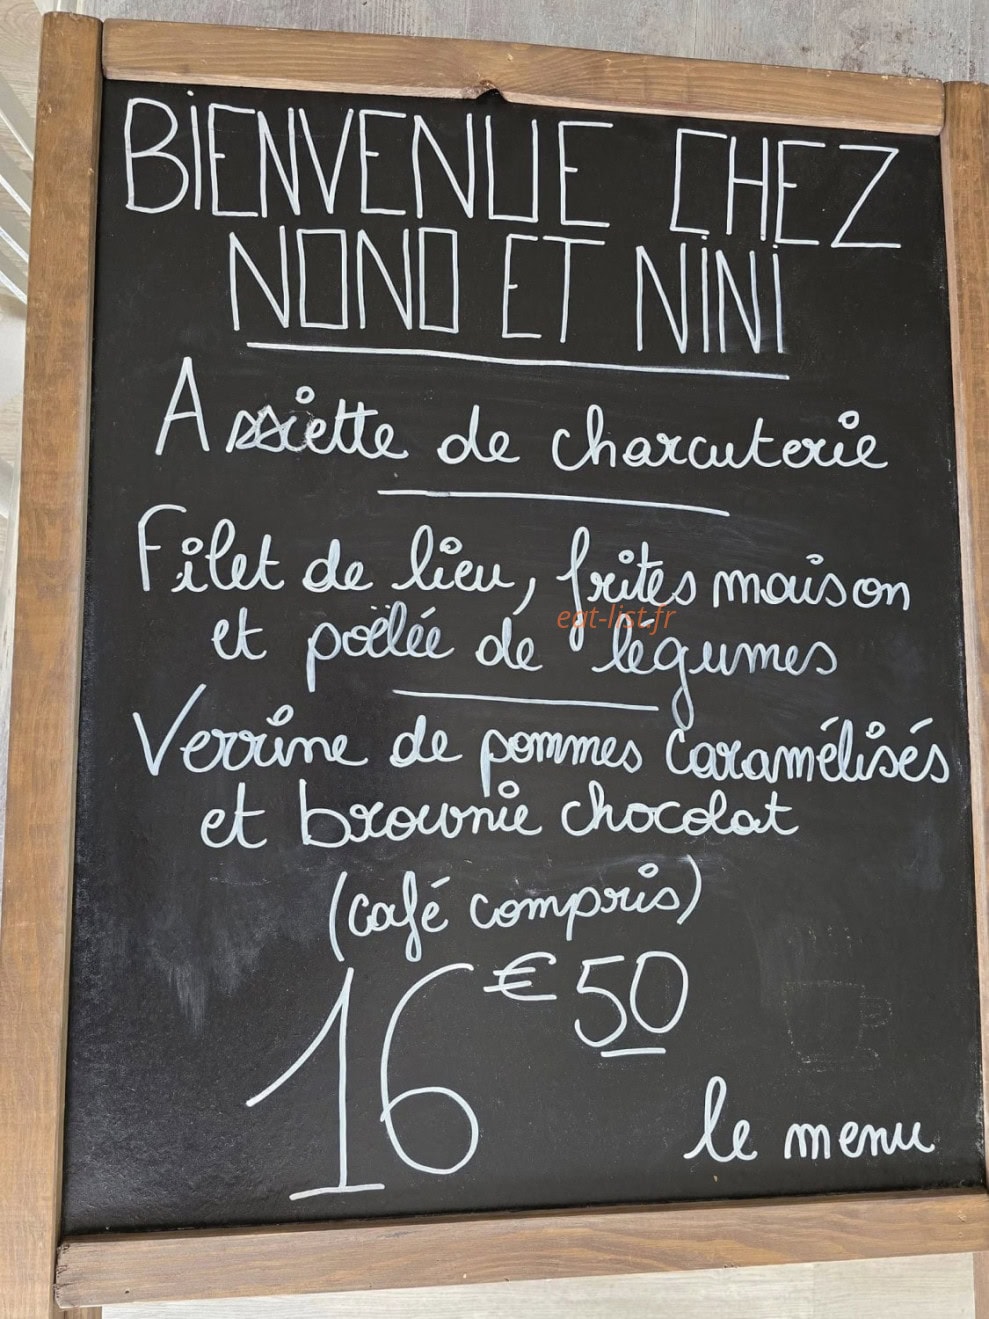 BIENVENUE CHEZ
NONO ET NINI
Assiette de charcuterie
Filet de lieu, frites maison
eat-list.fr
et poëlée de légumes
Verrine de pommes caramélisés
et brownie chocolat
(café compris)
16€50
le menu